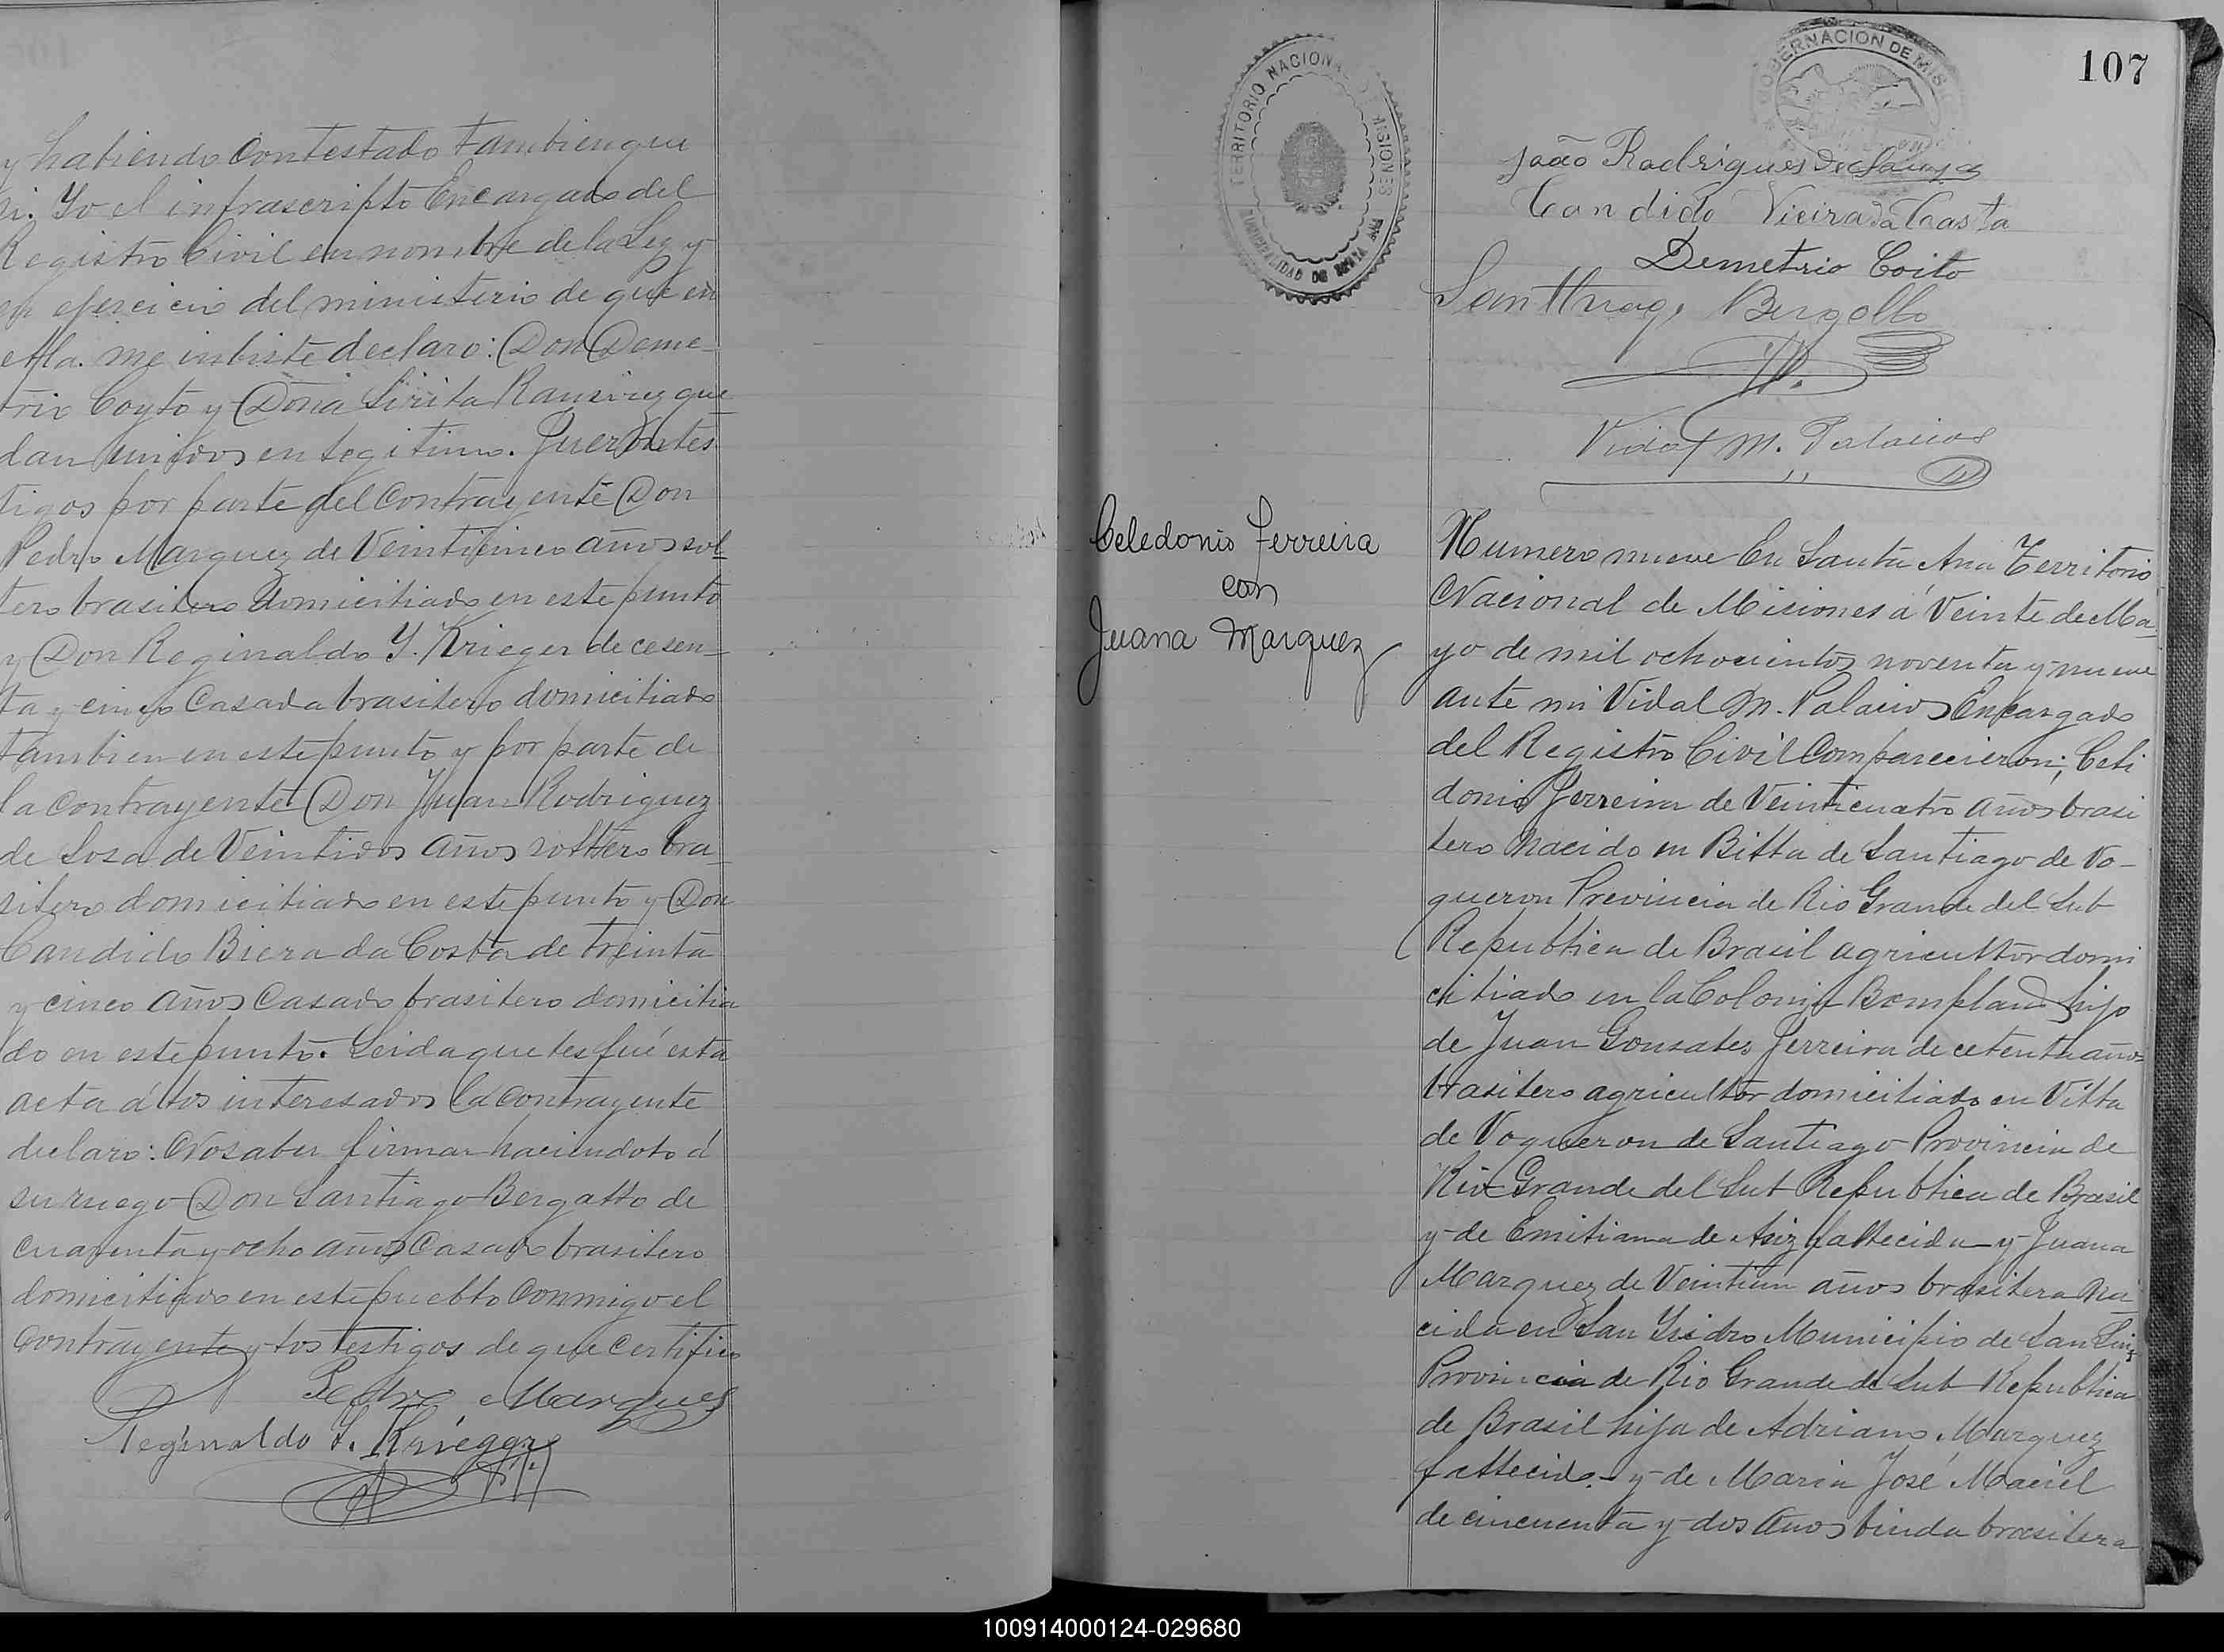 y habiendo contestado tambien que
si. Yo el infrascripto Encargado del
Registro Civil en nombre de la Ley y
en ejercicio del ministerio de que en
ella me inbiste declaro: Don Deme-
trio Coyto y Doña Sirita Ramirez que
dan unidos en legitimo. Fueron tes-
tigos por parte del Contrayente Don
Pedro Marquez de Veinticinco años sol-
tero brasilero domiciliado en este punto
y Don Reginaldo Y. Krieger de cesen-
ta y cinco Casado brasilero domiciliado
tambien en este punto y por parte de
la Contrayente Don Juan Rodriguez
de Sosa de Veintidos años soltero bra-
silero domiciliado en este punto y Don
Candido Biera da Costa de treinta
y cinco años Casado brasilero domicilia
do en este punto. Leida que les fué esta
acta á los interesados la Contrayente
declaro: No saber firmar haciendolo á
su ruego Don Santiago Bergallo de
cuarenta y ocho años Casado brasilero
domiciliado en este pueblo Conmigo el
Contrayente y los testigos de que Certifico
Pedro Marques
Reginaldo Y. Krieger
TERRITORIO NACIONAL DE MISIONES
MUNICIPALIDAD DE SANTA ANA
GOBERNACION DE MIS
107
João Rodrigues de Souza
Candido Vieira da Costa
Demetrio Coito
Santhiago Bergallo
Vidal M. Palacios
Celedonio Ferreira
con
Juana Marquez
Numero nueve En Santa Ana Territorio
Nacional de Misiones á Veinte de Ma-
yo de mil ochocientos noventa y nueve
ante mi Vidal M. Palacios Encargado
del Registro Civil Comparecieron; Celi
donio Ferreira de Veinticuatro años brasi
lero Nacido en Billa de Santiago de Vo-
queron Provincia de Rio Grande del Sul
Republica de Brasil agricultor domi
ciliado en la Colonia Bompland hijo
de Juan Gonsales Ferreira de cetenta años
brasilero agricultor domiciliado en Villa
de Voqueron de Santiago Provincia de
Rio Grande del Sul Republica de Brasil
y de Emiliana de Asiz fallecida y Juana
Marquez de Veintiun años brasilera Na-
cida en San Ysidro Municipio de San Luiz
Provincia de Rio Grande de Sul Republica
de Brasil hija de Adriano Marquez
fallecido. y de Maria José Maciel
de cincuenta y dos años biuda brasilera
100914000124-029680